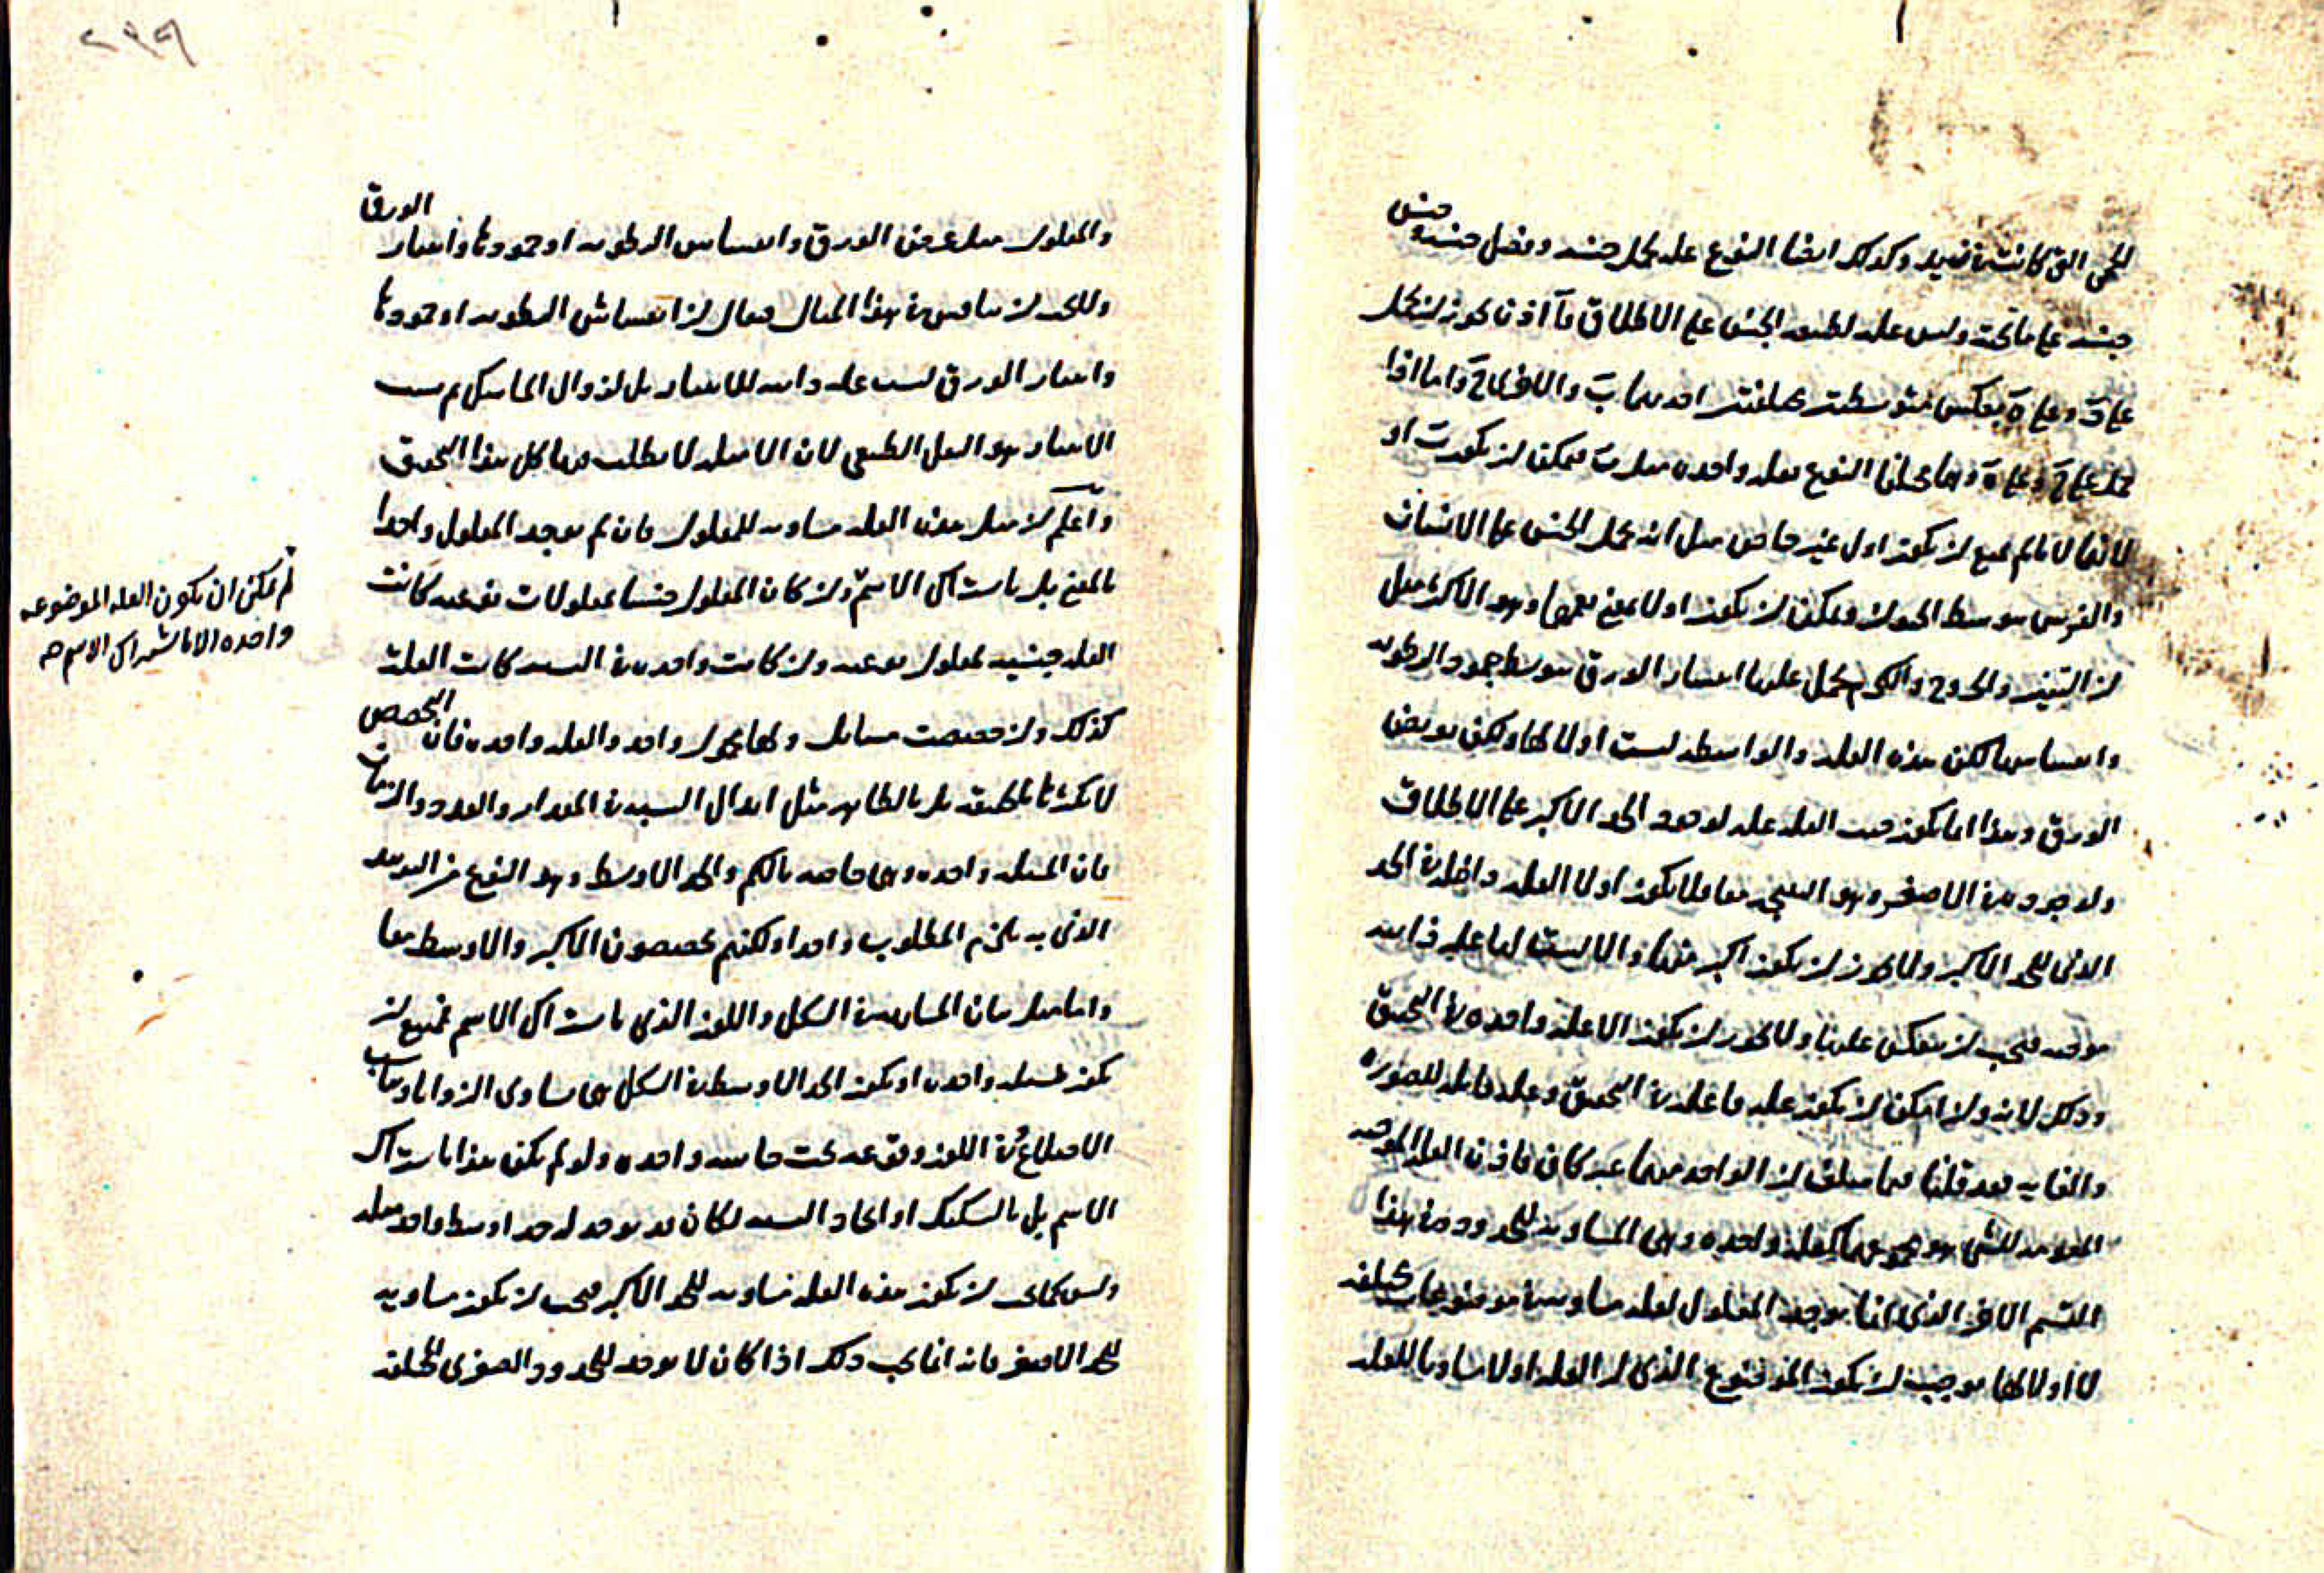 للحمى التى كانت فيه وكذلك ايضا النوع علة لحمل جنسه وفصل جنسه وجنس
جنسه على ما تحته وليس علة لطبيعة الجنس على الاطلاق فآ اذن يجوز ان يحمل
على دَ وعلى هَ بعكس متوسطين مختلفين احدهما بَ والاخر حَ واما اذا
حمل على حَ وعلى هَ وهما مختلفا النوع بعلة واحدة مثل بَ فيمكن ان يكون بَ او
لانها لا ما لم يمنع ان يكون اول غير خاص مثل انه يحمل الجنس على الانسان
والفرس بتوسط الحيوان ويمكن ان يكون اولا بمعنى يعمها وهو الاكثر مثل
ان التين والخروع والكرم يحمل عليها انتثار الورق بتوسط جمود الرطوبة
وانفشاشها لكن هذه العلة والواسطة ليست اولا لها ولكن بعرض
الورق وهذا انما يكون حيث العلة علة لوجود الحد الاكبر على الاطلاق
ولوجوده فى الاصغر وهو النتيجة معا ولا يكون اولا العلة داخلة فى الحد
الذى للحد الاكبر ولا يجوز ان يكون اكبر منها والا ليست لها علة ذاتية
موجبة فيجب ان ينعكس عليها ولا يجوز ان يكون الا علة واحدة فى التحقيق
وذلك لانه وان امكن ان يكون علة فاعلة فى التحقيق وعلة قابلة للصورة
والغاية فقد قلنا فيما سلف ان الواحد منهما غير كاف فاذن العلة الموجبة
المقومة للشى هو مجموعها كعلة واحدة وهى المساوية للحد ودخل هذا
القسم الاخر الذى انما يوجد المعلول لعلة مساوية فى موضوعات مختلفة
لا اولا لها يوجب ان يكون الموضوع الذى له العلة اولا مساويا للعلة
والمعلول مثل عرض الورق وانفشاش الرطوبة او جمودها وانتثار الورق
وللبحث ان يناقش فى هذا المثال فيقال ان انفشاش الرطوبة او جمودها
وانتثار الورق ليست علة ذاتية للانتثار بل لزوال الماسك ثم سبب
الانتثار هو الثقل الطبيعى لان الامثلة لا يطلب فيها كل هذا التحقيق
واعلم ان مثل هذه العلة مساوية للمعلول فان لم يوجد المعلول واحدا
بالمعنى بل باشتراك الاسم وان كان المعلول جنسا لمعلولات نوعية كانت
العلة جنسية لمعلول نوعية وان كانت واحدة فى النسبة كانت العلة
كذلك وان خصصت مسائل ولها محمول واحد والعلة واحدة فان التخصيص
لا يكثرها بالحقيقة بل بالظاهر مثل ابدال النسبة فى المقدار والعدد والزمان
فان المسئلة واحدة وهى خاصة بالكم والحد الاوسط وهو النوع من التزيد
الذى به يلزم المطلوب واحد ولكنهم يخصصون الاكبر والاوسط معا
واما مثل بيان المشابهة فى الشكل واللون الذى باشتراك الاسم فممتنع ان
يكون لمسئلة واحدة او يكون الحد الاوسط فى الشكل هى تساوى الزوايا وتناسب
الاضلاع وفى اللون وقوعه تحت حاسة واحدة ولو لم يكن هذا باشتراك
الاسم بل بالتشكيك او اتحاد النسبة لكان قد يوجد له حد اوسط واحد مثله
وليس كما يجب ان يكون هذه العلة مساوية للحد الاكبر فيجب ان يكون مساوية
للحد الاصغر فانه انما يجب ذلك اذا كان لا يوجد للحدود الصغرى المختلفة
لم يمكن ان يكون العلة الموضوعة
واحدة الا باشتراك الاسم صح
٢٩٩